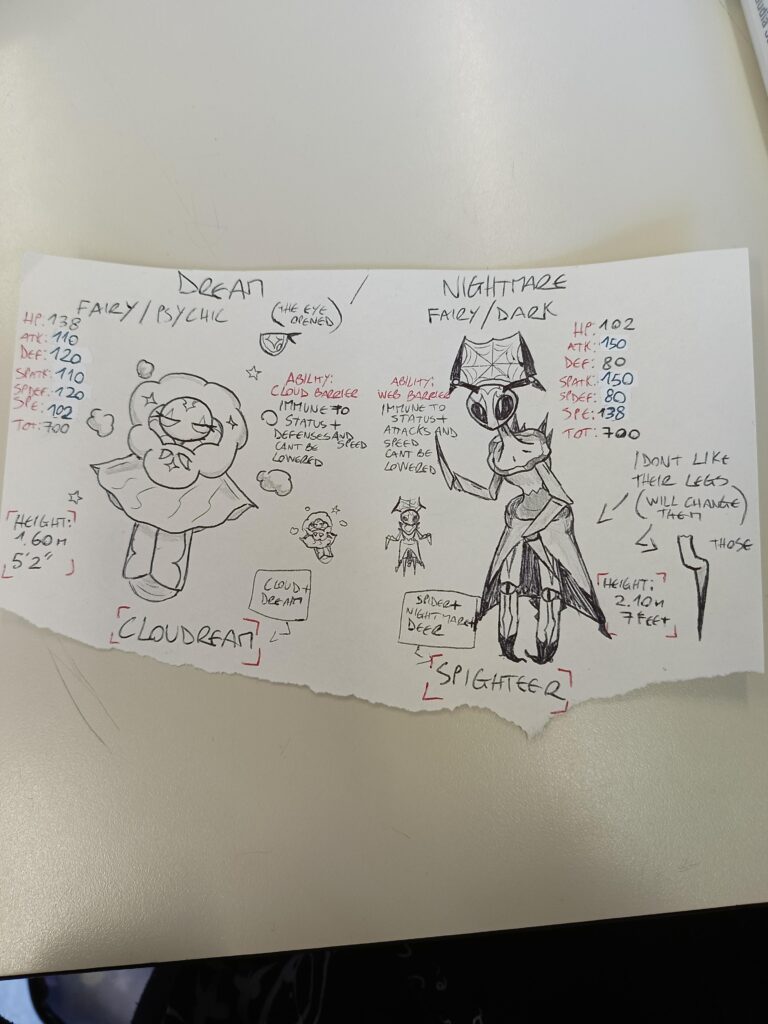 DREAM / NIGHTMARE
FAIRY/PSYCHIC
(THE EYE
OPENED)
HP: 138
ATK: 110
DEF: 120
SPATK: 110
SPDEF: 120
SPE: 102
TOT: 700
ABILITY:
CLOUD BARRIER
IMMUNE TO
STATUS +
DEFENSES AND SPEED
CANT BE
LOWERED
HEIGHT:
1.60M
5'2"
CLOUD +
DREAM
CLOUDREAM
FAIRY/DARK
HP: 102
ATK: 150
DEF: 80
SPATK: 150
SPDEF: 80
SPE: 138
TOT: 700
ABILITY:
WEB BARRIER
IMMUNE TO
STATUS+
ATTACKS AND
SPEED
CANT BE
LOWERED
I DONT LIKE
THEIR LEGS
(WILL CHANGE
THEM)
THOSE
HEIGHT:
2.10M
7 FEET
SPIDER+
NIGHTMARE+
DEER
SPIGHTEER